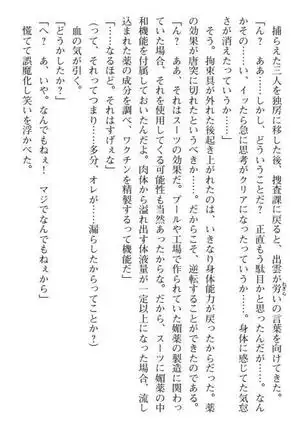 捕らえた三人を独房に移した後、捜査課に戻ると、出雲が労いの言葉を向けてきた。
「ん？　ああ……しかし、どういうことだ？　正直もう駄目かと思ったんだが……。なん
かその……、イッたら急に思考がクリアになったっていうか……。身体に感じてた気怠
さが消えたっていうか……」
　そう、拘束具が外れた後起き上がれたのは、いきなり身体能力が戻ったからだった。薬
の効果が唐突に切れたというべきか……。だからこそ、逆転することができたのである。
「ん？　ああ、それはスーツの効果だ。プールや工場で作られていた媚薬の製造に関わっ
ていた場合、それを使用してくる可能性も当然あったからな。だから、スーツに媚薬の中
和機能を付属しておいたんだよ。肉体から溢れ出す体液量が一定以上になった場合、流し
込まれた薬の成分を調べ、ワクチンを精製するって機能だ」
「……なるほど。そいつはすげぇな」
（って、それってつまり……多分、オレが……漏らしたからってことか？）
　血の気が引く。
「どうかしたか？」
「へ？　あ、いや、なんでもねぇ！　マジでなんでもねぇから」
　慌てて誤魔化し笑いを浮かべた。
ねぎら